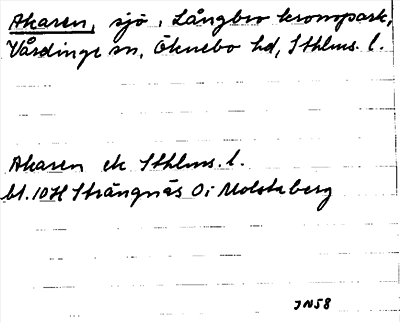 Akaren, sjö, Långbro kronopark,
Vårdinge sn, Öknebo hd, Sthlms. l.
Akaren ek Sthlms. l.
bl. 10H Strängnäs O; Molstaberg
JN58